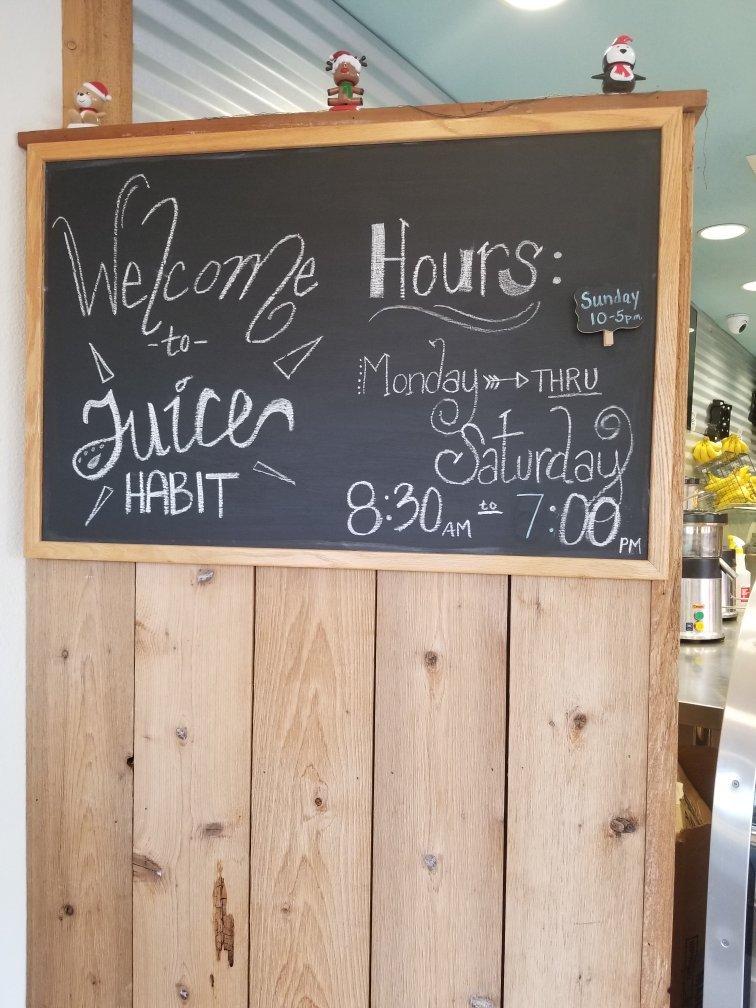 Welcome
-to-
Juice
HABIT
Hours:
Sunday
10-5pm
Monday THRU
Saturday
8:30 AM to 7:00 PM